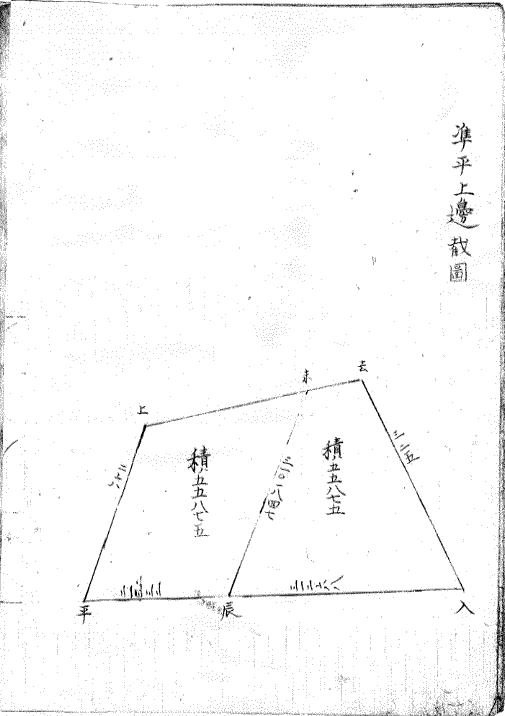 準平上邊截圖
去
未
上
三二五
積五五八七五
積五五八七五
三一〇一八四七
二六
平
辰
入